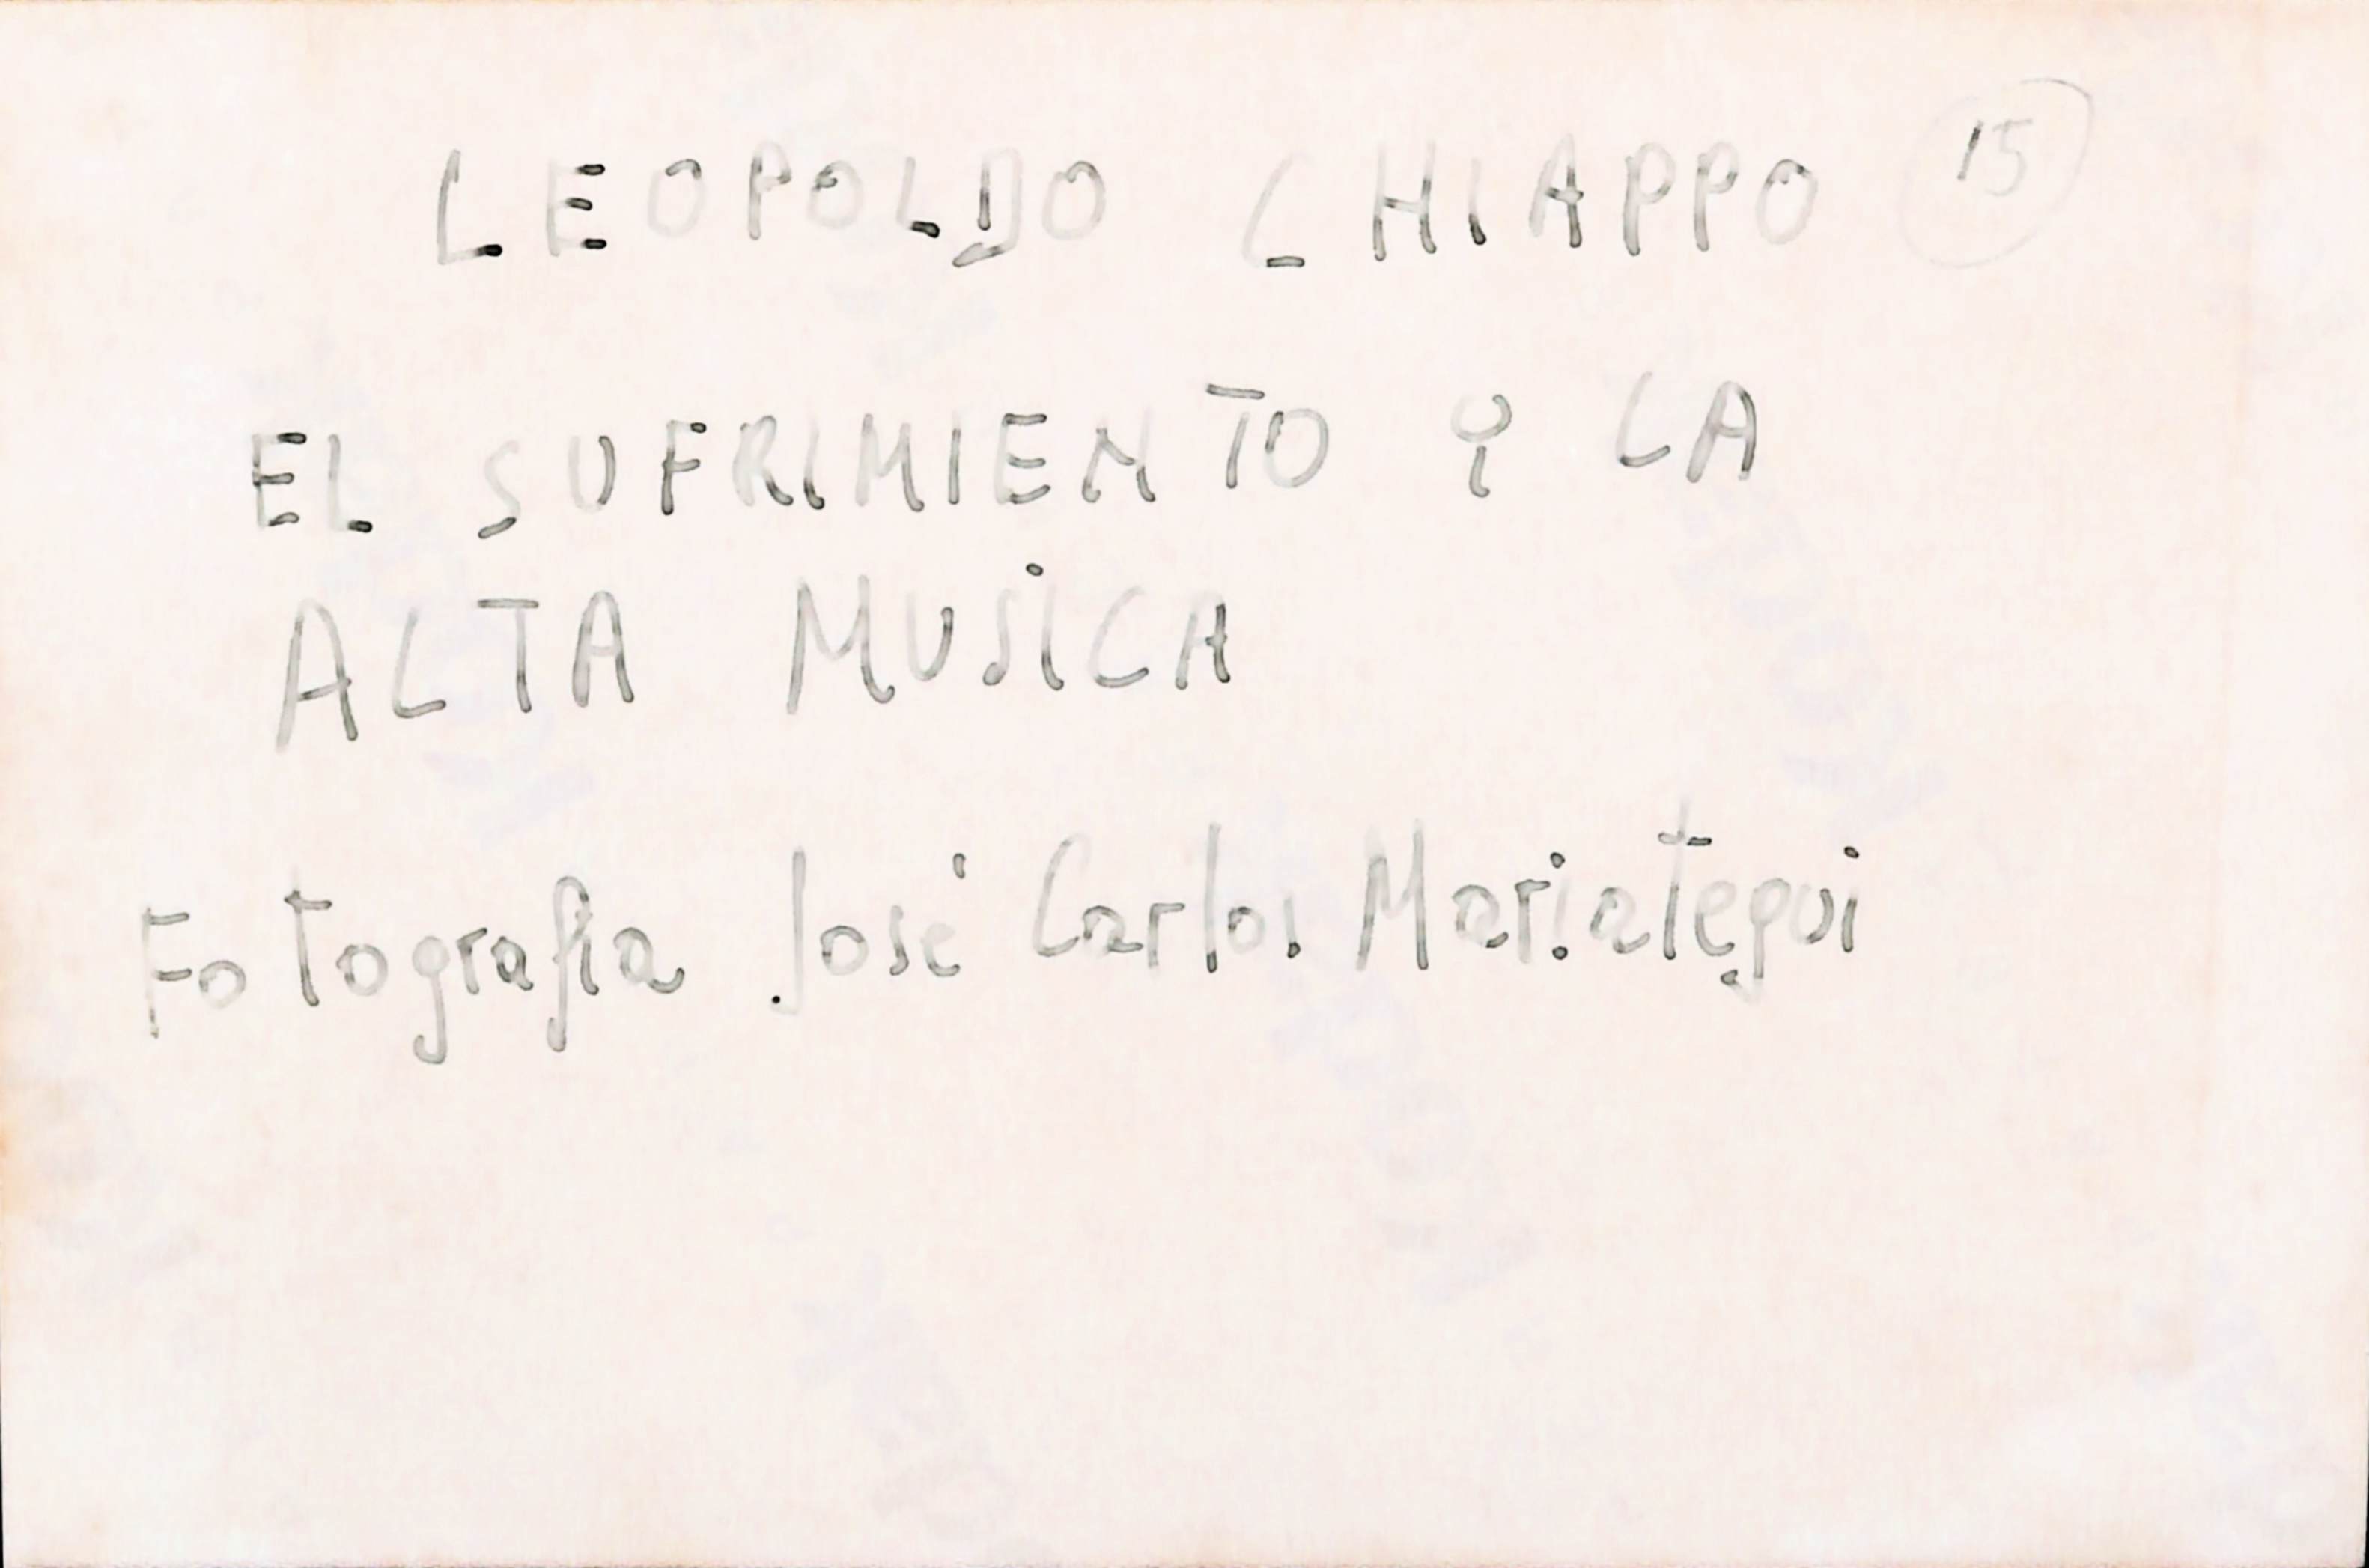 LEOPOLDO CHIAPPO 15
EL SUFRIMIENTO Y LA
ALTA MUSICA
Fotografia José Carlos Mariategui